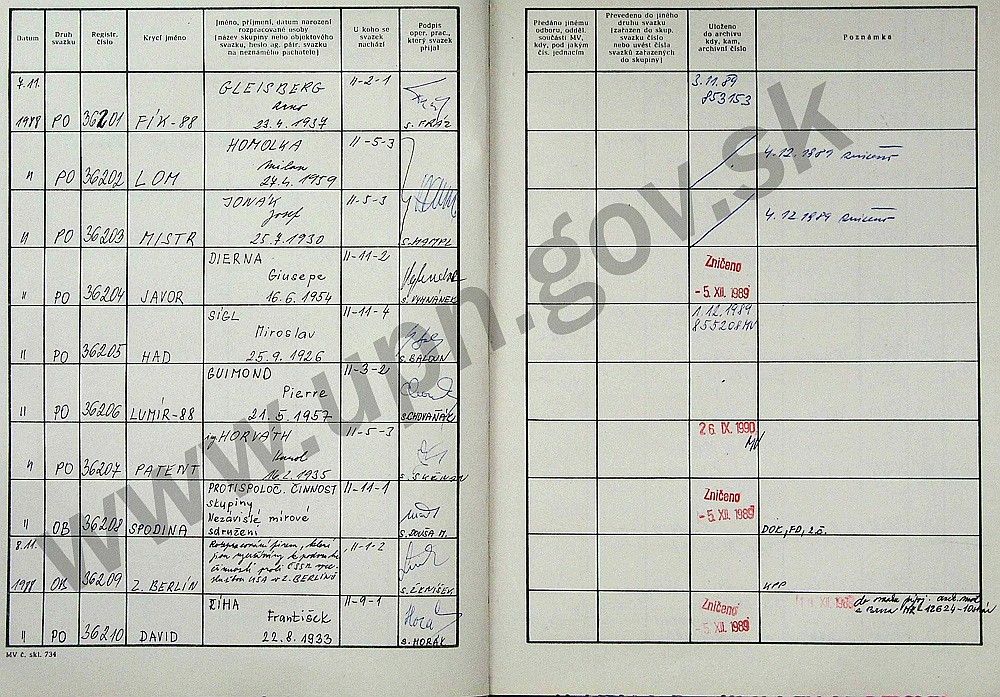 Datum
Druh svazku
Registr. číslo
Krycí jméno
Jméno, příjmení, datum narození
rozpracované osoby
(název skupiny nebo objektového
svazku, heslo ag. pátr. svazku
na neznámého pachatele)
U koho se
svazek
nachází
Podpis
oper. prac.,
který svazek
přijal
Předáno jinému
odboru, odděl.
součásti MV,
kdy, pod jakým
čís. jednacím
Převedeno do jiného
druhu svazku
(zařazen do skup.
svazku číslo
nebo uvést čísla
svazků zařazených
do skupiny)
Uloženo
do archivu
kdy, kam,
archivní číslo
Poznámka
7.11.
1988 PO 36201 FÍK-88
GLEISBERG
Arno
23.4.1937
II-2-1
3.11.89
853153
" PO 36202 LOM
HOMOLKA
Milan
24.4.1959
II-5-3
4.12.1989 zničeno
" PO 36203 MISTR
JONÁK
Josef
25.7.1930
II-5-3
S.HAMPL
4.12.1989 zničeno
" PO 36204 JAVOR
DIERNA
Giusepe
16.6.1954
II-11-2
S. VYHNÁNEK
Zničeno
-5. XII. 1989
" PO 36205 HAD
SÍGL
Miroslav
25.9.1926
II-11-4
S. BALOUN
1.12.1989
855208MV
" PO 36206 LUMÍR-88
GUIMOND
Pierre
21.5.1957
II-3-2
S.CHOVAŇÁK
" PO 36207 PATENT
ing HORVÁTH
Karol
16.2.1935
II-5-3
26. IX. 1990
MV
" OB 36208 SPODINA
PROTISPOLOČ. ČINNOST
skupiny
Nezávislé mírové
sdružení
II-11-1
S.DOUŠA M.
Zničeno
-5. XII. 1989
8.11.
1988 OB 36209 Z. BERLÍN
II-1-2
" PO 36210 DAVID
ŘÍHA
František
22.8.1933
II-9-1
S. HORÁK
Zničeno
-5. XII. 1989
MV č. skl. 734
www.upn.gov.sk